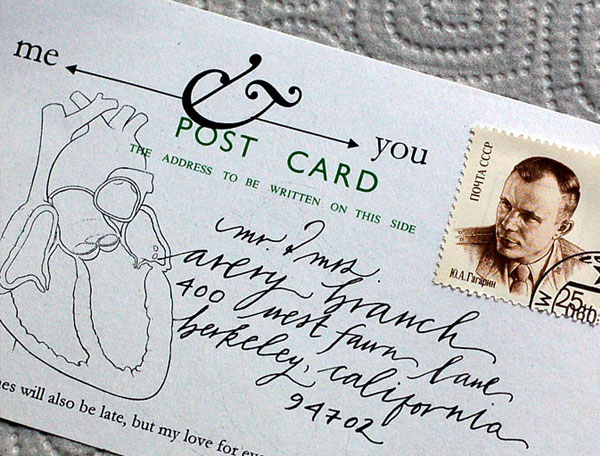 me & you
POST CARD
THE ADDRESS TO BE WRITTEN ON THIS SIDE
ПОЧТА СССР
Ю.А.Гагарин
25
mr. & mrs.
avery branch
400 west fawn lane
berkeley, california
94702
will also be late, but my love for